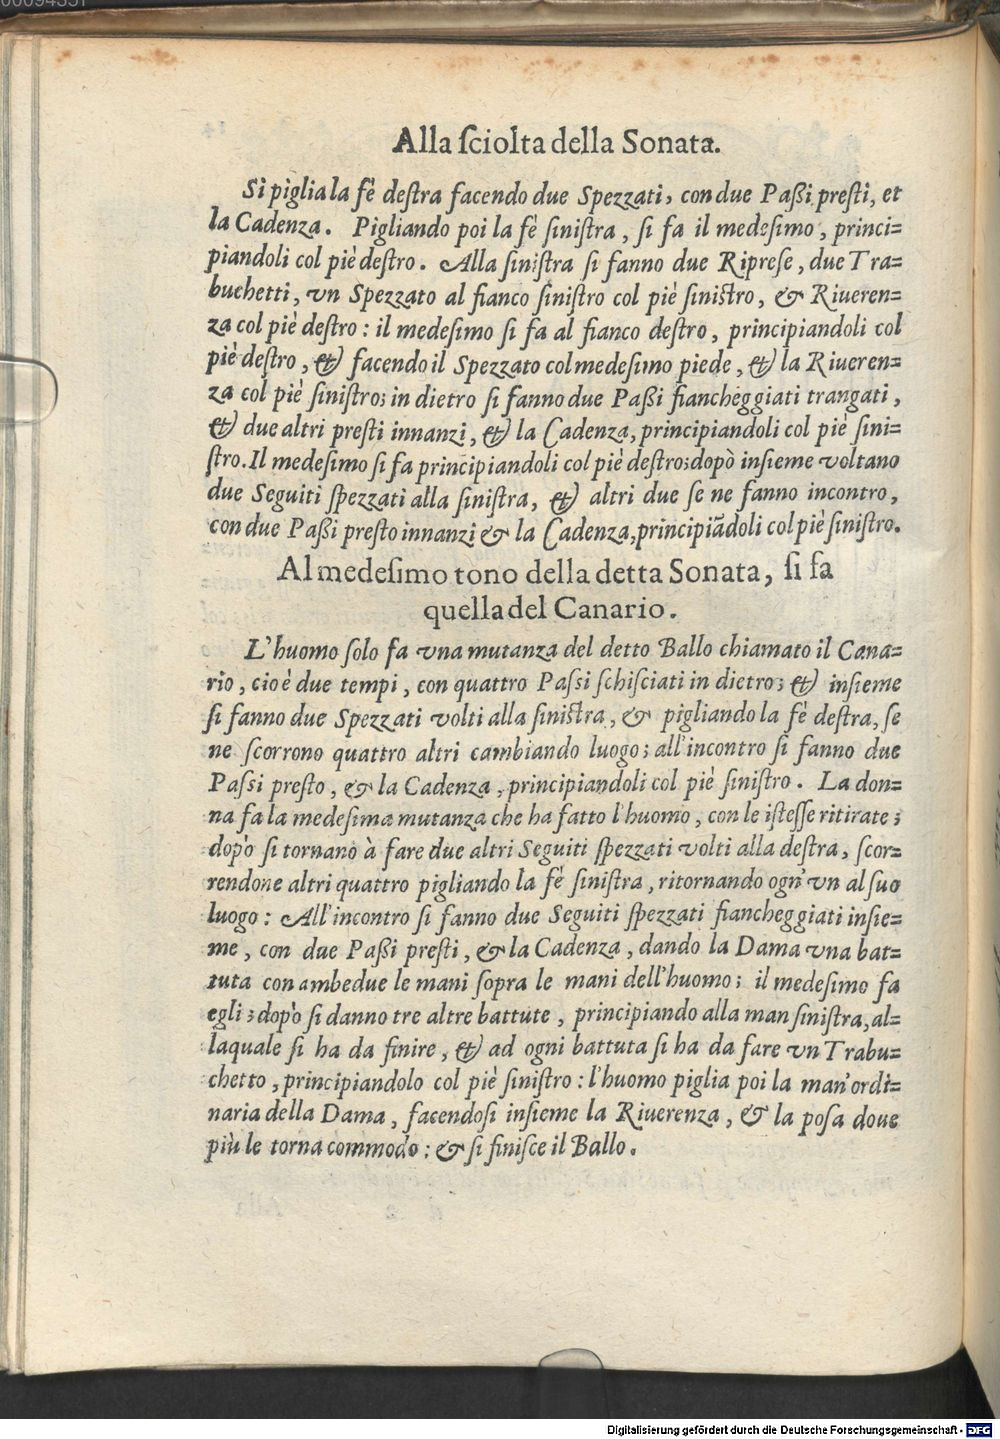 Alla ſciolta della Sonata.
Si piglia la fè deſtra facendo due Spezzati, con due Paßi preſti, et
la Cadenza. Pigliando poi la fè ſiniſtra, ſi fa il medeſimo, princi=
piandoli col piè deſtro. Alla ſiniſtra ſi fanno due Ripreſe, due Tra=
buchetti, vn Spezzato al fianco ſiniſtro col piè ſiniſtro, & Riueren=
za col piè deſtro: il medeſimo ſi fa al fianco deſtro, principiandoli col
piè deſtro, & facendo il Spezzato col medeſimo piede, & la Riueren=
za col piè ſiniſtro; in dietro ſi fanno due Paßi fiancheggiati trangati,
& due altri preſti innanzi, & la Cadenza, principiandoli col piè ſini=
ſtro. Il medeſimo ſi fa principiandoli col piè deſtro; dopò inſieme voltano
due Seguiti ſpezzati alla ſiniſtra, & altri due ſe ne fanno incontro,
con due Paßi preſto innanzi & la Cadenza, principiãdoli col piè ſiniſtro.
Al medeſimo tono della detta Sonata, ſi fa
quella del Canario.
L'huomo ſolo fa vna mutanza del detto Ballo chiamato il Cana=
rio, cioè due tempi, con quattro Paſsi ſchiſciati in dietro; & inſieme
ſi fanno due Spezzati volti alla ſiniſtra, & pigliando la fè deſtra, ſe
ne ſcorrono quattro altri cambiando luogo; all'incontro ſi fanno due
Paſsi preſto, & la Cadenza, principiandoli col piè ſiniſtro. La don=
na fa la medeſima mutanza che ha fatto l'huomo, con le iſteſſe ritirate;
dopò ſi tornano à fare due altri Seguiti ſpezzati volti alla deſtra, ſcor=
rendone altri quattro pigliando la fè ſiniſtra, ritornando ogn'vn al ſuo
luogo: All'incontro ſi fanno due Seguiti ſpezzati fiancheggiati inſie=
me, con due Paßi preſti, & la Cadenza, dando la Dama vna bat=
tuta con ambedue le mani ſopra le mani dell'huomo; il medeſimo fa
egli; dopò ſi danno tre altre battute, principiando alla man ſiniſtra, al=
laquale ſi ha da finire, & ad ogni battuta ſi ha da fare vn Trabu=
chetto, principiandolo col piè ſiniſtro: l'huomo piglia poi la man'ordi=
naria della Dama, facendoſi inſieme la Riuerenza, & la poſa doue
più le torna commodo: & ſi finiſce il Ballo.
Digitalisierung gefördert durch die Deutsche Forschungsgemeinschaft - DFG